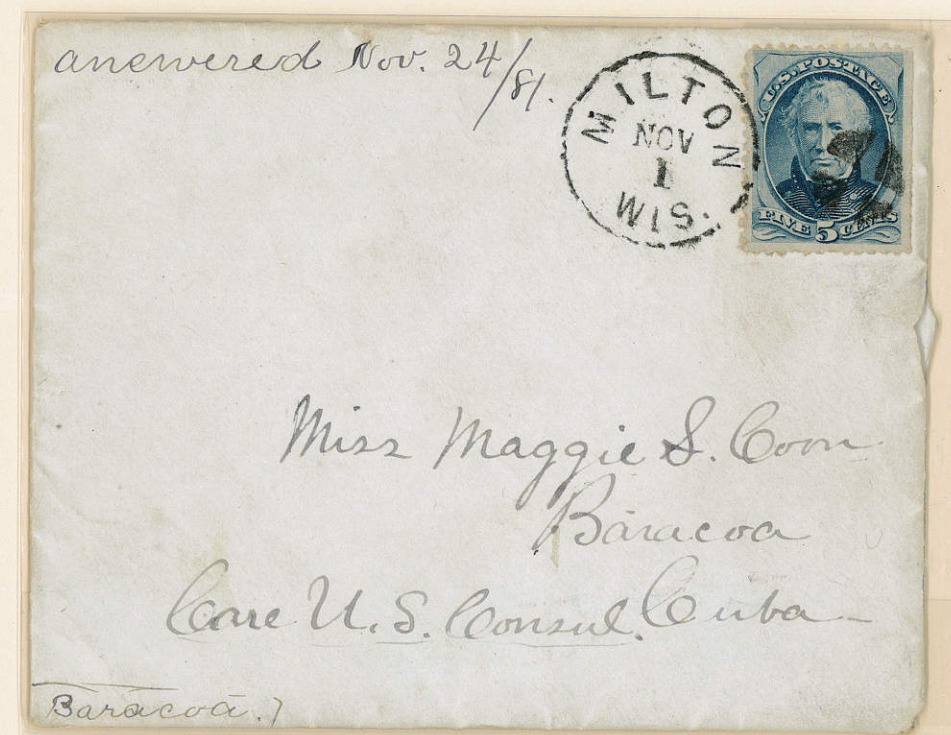 answered Nov. 24/81.
MILTON
NOV
1
WIS.
U.S. POSTAGE
FIVE 5 CENTS
Miss Maggie S. Coon
Baracoa
Care U.S. Consul. Cuba
Baracoa.